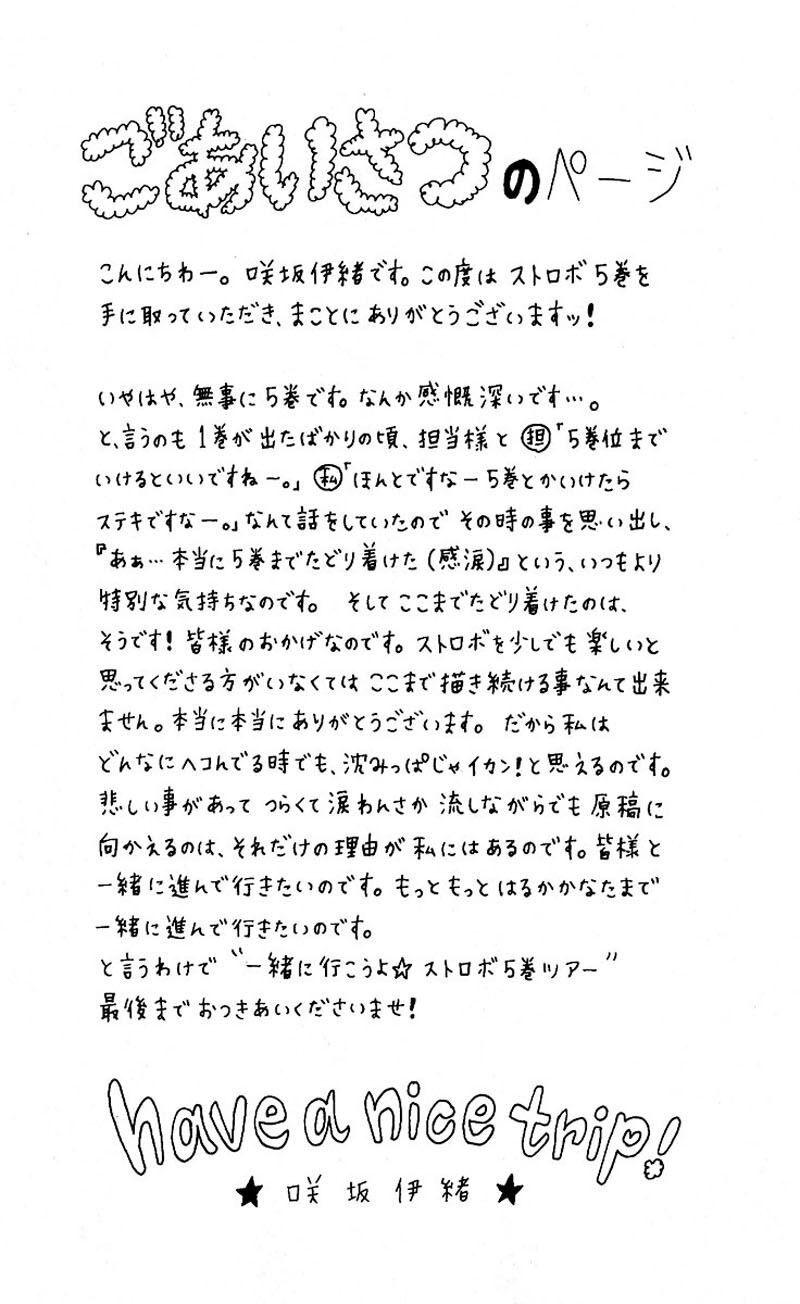 ごあいさつのページ
こんにちわー。咲坂伊緒です。この度は ストロボ5巻を
手に取っていただき、まことに ありがとうございますッ!
いやはや、無事に5巻です。なんか感慨深いです…。
と、言うのも 1巻が出たばかりの頃、担当様と 担「5巻位まで
いけるといいですねー。」 私「ほんとですなー5巻とかいけたら
ステキですなー。」なんて話をしていたので その時の事を思い出し、
『あぁ…本当に5巻までたどり着けた(感涙)』という、いつもより
特別な気持ちなのです。 そして ここまでたどり着けたのは、
そうです! 皆様のおかげなのです。ストロボを少しでも楽しいと
思ってくださる方がいなくては ここまで描き続ける事なんて出来
ません。本当に本当にありがとうございます。 だから私は
どんなにヘコんでる時でも、沈みっぱじゃイカン!と思えるのです。
悲しい事があって つらくて涙わんさか 流しながらでも 原稿に
向かえるのは、それだけの理由が私にはあるのです。皆様と
一緒に進んで行きたいのです。もっともっと はるかかなたまで
一緒に進んで行きたいのです。
と言うわけで “一緒に行こうよ☆ ストロボ5巻ツアー”
最後まで おつきあいくださいませ!
have a nice trip!
★ 咲坂伊緒 ★